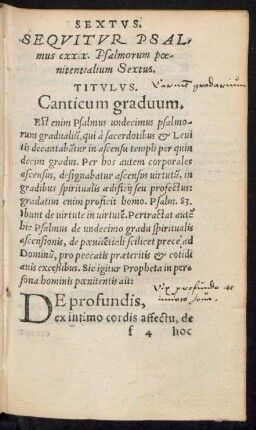 SEXTVS.
SEQVITVR PSAL-
mus cxxx. Psalmorum pœ-
nitentialium Sextus.
TITVLVS.
Canticum graduum.
Est enim Psalmus undecimus psalmo-
rum gradualiũ, qui à sacerdotibus & Leui
tis decantabãtur in ascensu templi per quin
decim gradus. Per hos autem corporales
ascensus, designabatur ascensus uirtutũ, in
gradibus spiritualis ædificij seu profectus:
gradatim enim proficit homo. Psalm. 83.
Ibunt de uirtute in uirtutẽ. Pertractat autẽ
hic Psalmus de undecimo gradu spiritualis
ascensionis, de pœnitẽtiali scilicet prece ad
Dominũ, pro peccatis præteritis & cotidi
anis excessibus. Sic igitur Propheta in per-
sona hominis pœnitentis ait:
DE profundis,
ex intimo cordis affectu, de
f 4 hoc